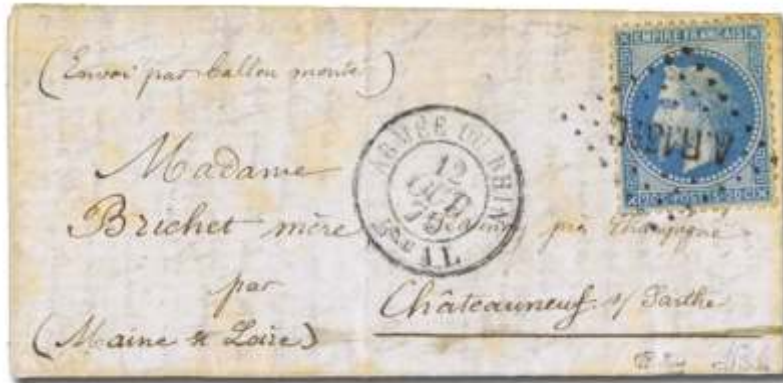 (Envoi par ballon monté)
EMPIRE FRANÇAIS
Madame
Brichet mère
près Champagné
par
Châteauneuf s/ Sarthe
(Maine & Loire)
ARMÉE DU RHIN
12
70
AL
20 C POSTES 20 C